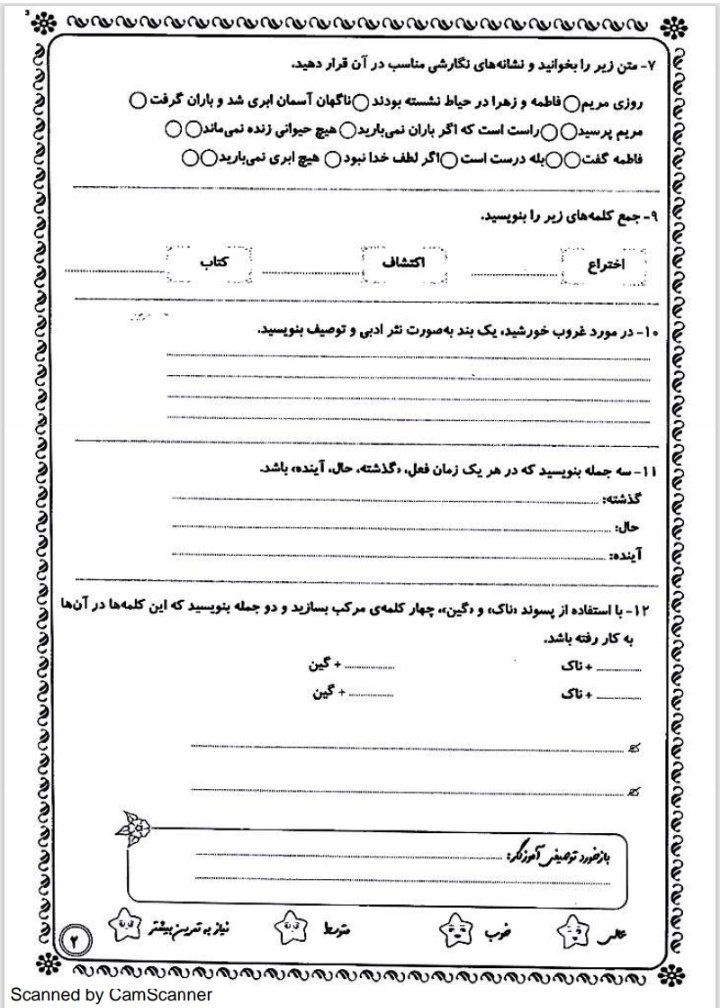 ۷- متن زیر را بخوانید و نشانه‌های نگارشی مناسب در آن قرار دهید.
روزی مریم○ فاطمه و زهرا در حیاط نشسته بودند○ناگهان آسمان ابری شد و باران گرفت○
مریم پرسید○○راست است که اگر باران نمی‌بارید○ هیچ حیوانی زنده نمی‌ماند○○
فاطمه گفت○○بله درست است○اگر لطف خدا نبود○ هیچ ابری نمی‌بارید○○
۹- جمع کلمه‌های زیر را بنویسید.
اختراع ........ اکتشاف ........ کتاب ........
۱۰- در مورد غروب خورشید، یک بند به‌صورت نثر ادبی و توصیف بنویسید.
۱۱- سه جمله بنویسید که در هر یک زمان فعل، «گذشته، حال، آینده» باشد.
گذشته: ........
حال: ........
آینده: ........
۱۲- با استفاده از پسوند «ناک» و «گین»، چهار کلمه‌ی مرکب بسازید و دو جمله بنویسید که این کلمه‌ها در آن‌ها
به کار رفته باشد.
........ + ناک ........ + گین
........ + ناک ........ + گین
بازخورد توصیفی آموزگار: ........
عالی خوب متوسط نیاز به تمرین بیشتر
۲
Scanned by CamScanner